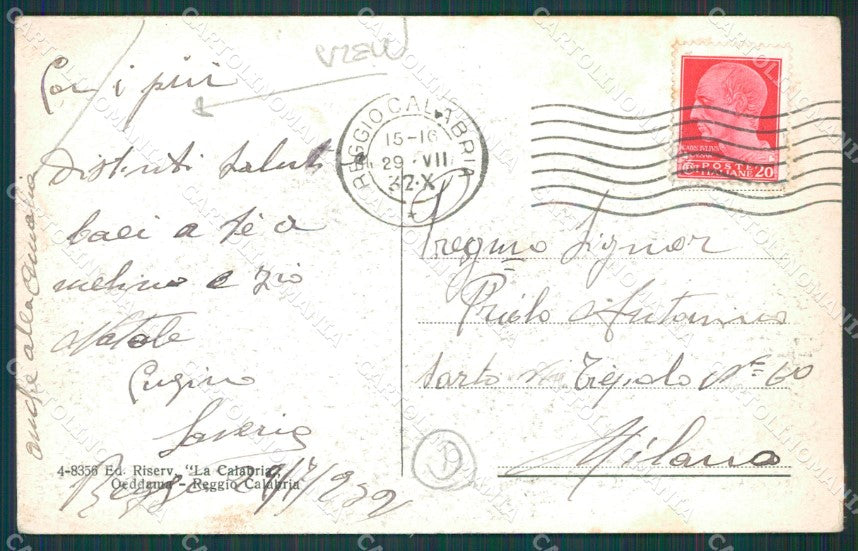 VIEW
Con i più
distinti saluti
baci a te a
melino e zio
Natale
Cugino
Saverio
Reggio 29/7/932
anche alla
4-8356 Ed. Riserv. "La Calabria"
Oeddama - Reggio Calabria
REGGIO CALABRIA
15-16
29 · VII
32·X
POSTE
ITALIANE 20
Pregmo Signor
Priolo Antonino
Sarto via Tiepolo N= 60
Milano
CARTOLINOMANIA